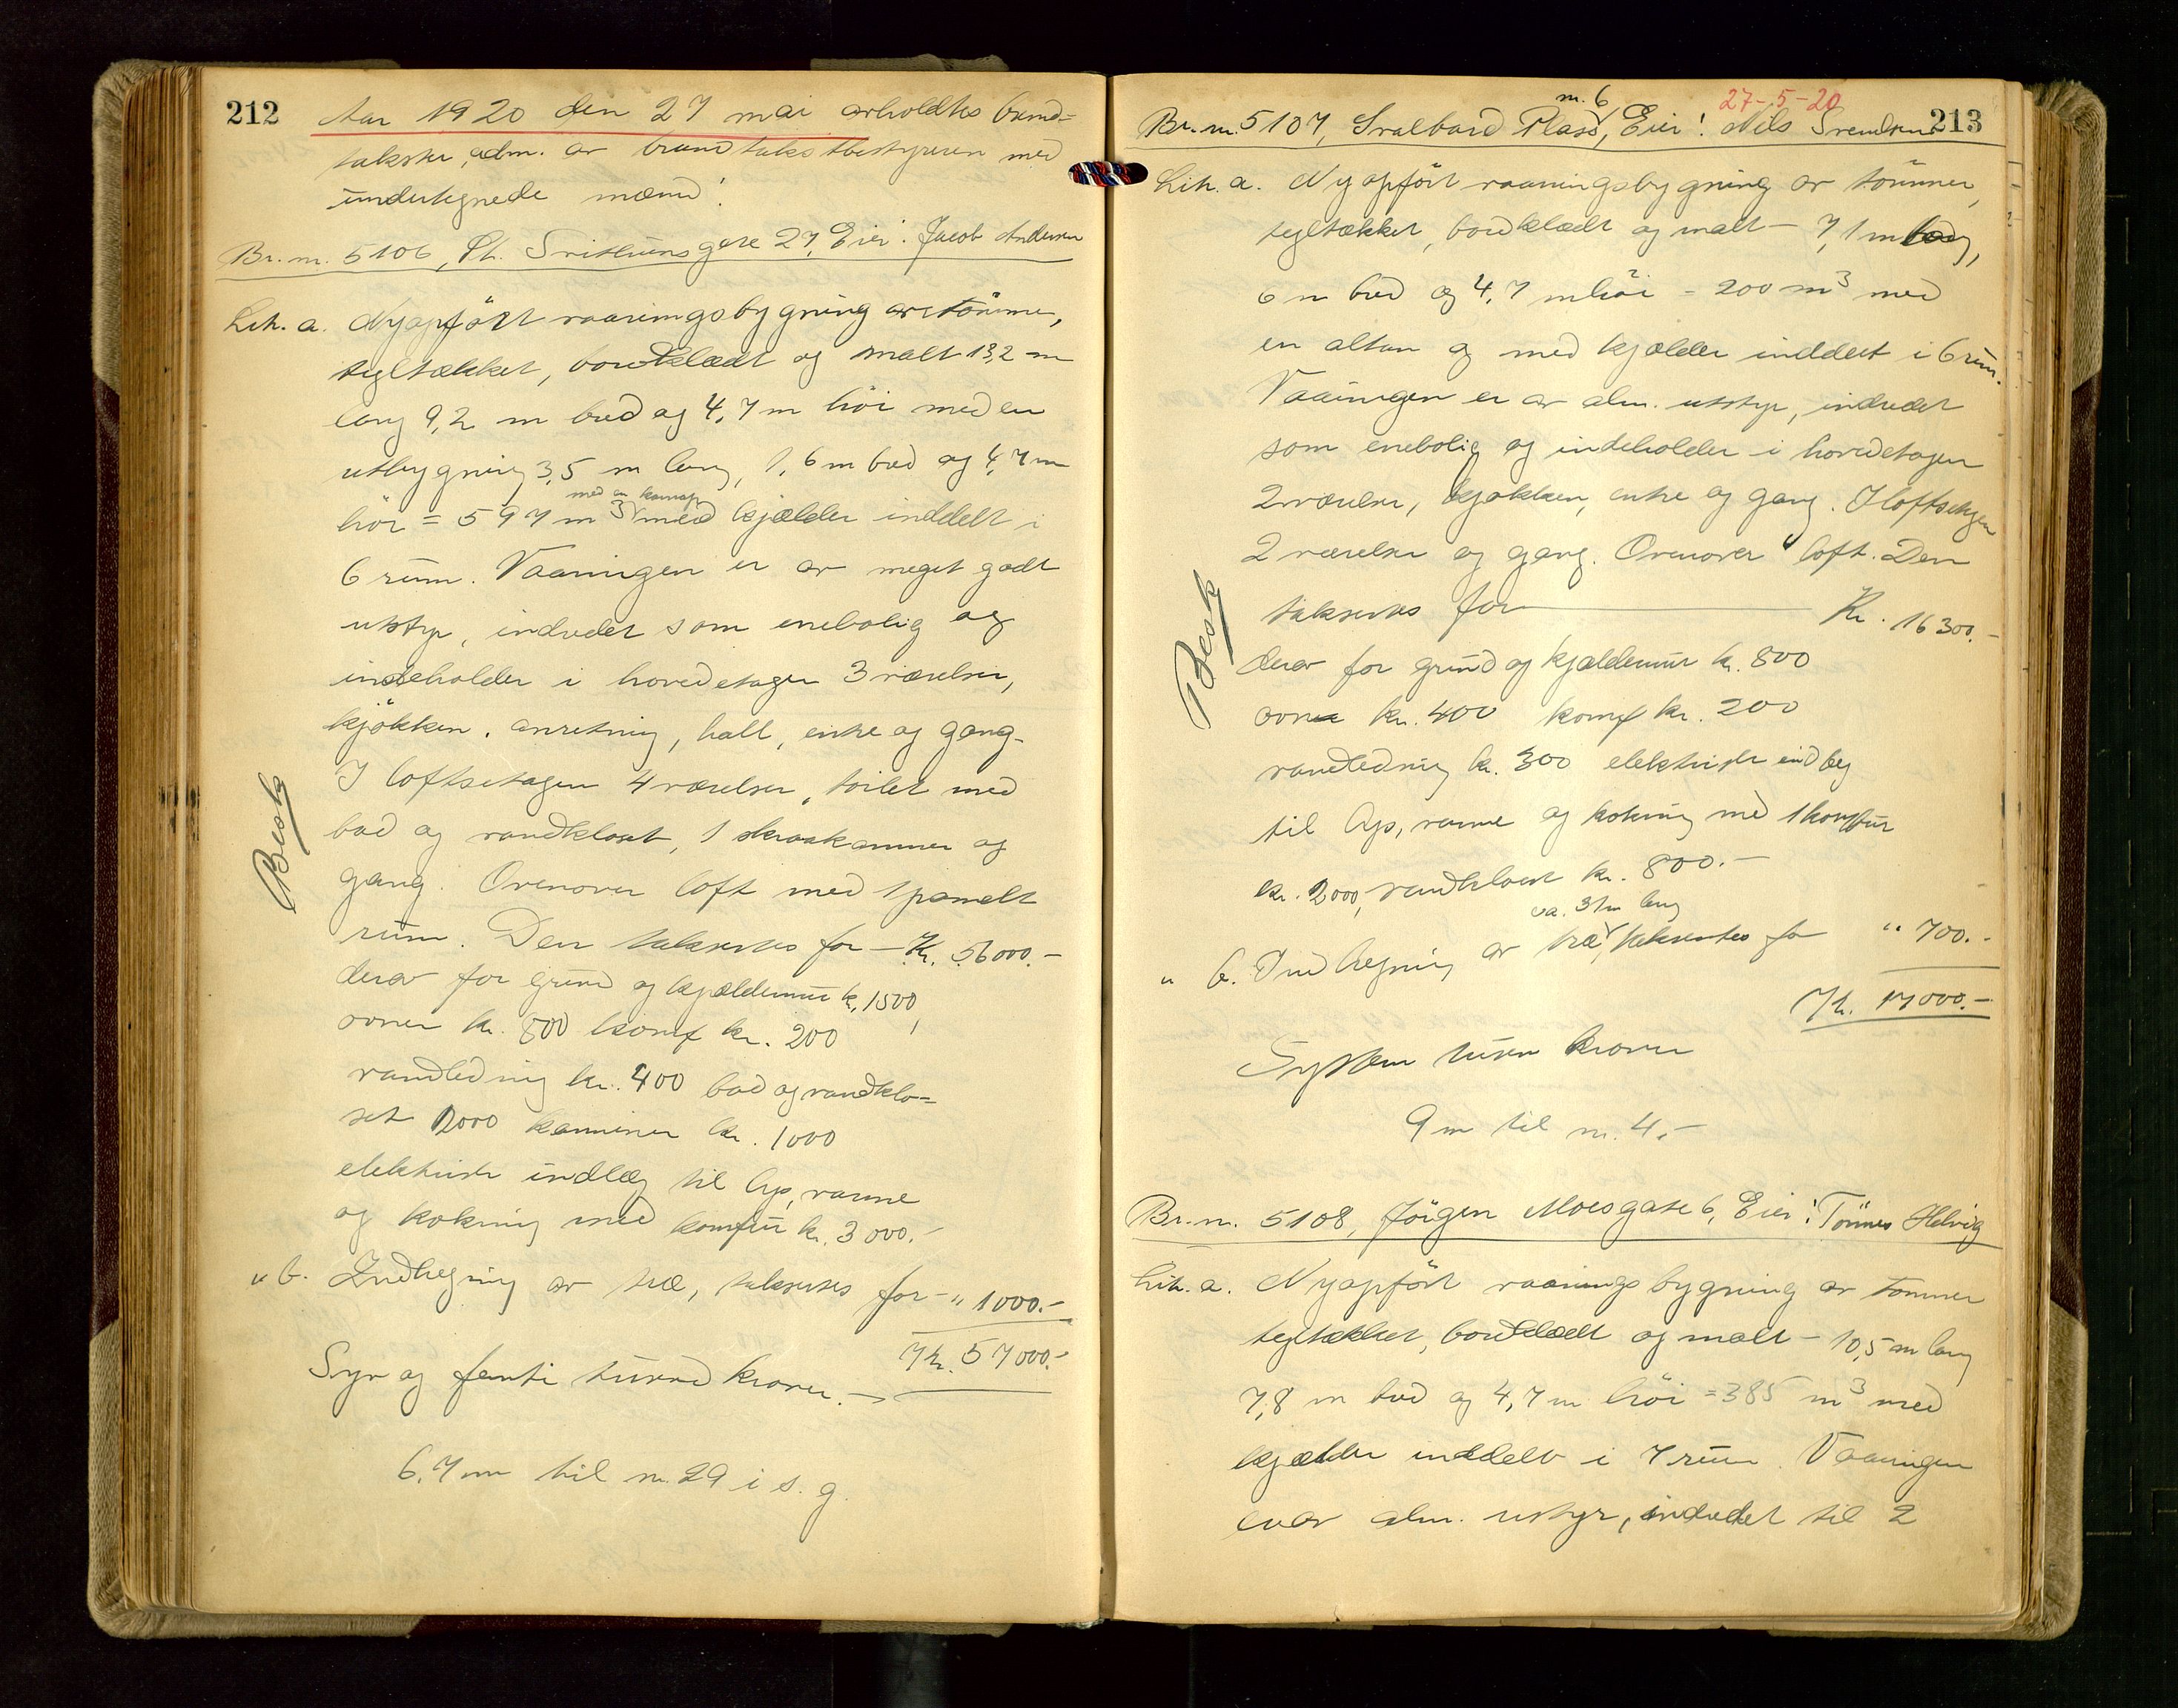 212
Aar 1920 den 27 mai avholdtes brand=
takster, adm. av brandtakstbestyreren med
undertegnede mænd:
Br. nr. 5106, St. Svithuns gate 27, Eier: Jacob Andersen
Lit. a. Nyopført vaaningsbygning av tømmer,
tegltækket, bordklædt og malt 13,2 m
lang 9,2 m bred og 4,7 m høi med en
utbygning 3,5 m lang, 1,6 m bred og 4,7 m
med en karnap
høi = 597 m3 med kjælder inddelt i
6 rum. Vaaningen er av meget godt
utstyr, indredet som enebolig og
indeholder i hovedetagen 3 værelser,
kjøkken, anretning, hall, entre og gang.
I loftsetagen 4 værelser, toilet med
bad og vandkloset, 1 skraakammer og
gang. Ovenover loft med 1 panelt
rum. Den takseres for – Kr. 56000.–
derav for grund og kjældermur kr. 1500,
ovner kr. 800 komf kr. 200
vandledning kr. 400 bad og vandklo=
set 2000 kaminer kr. 1000
elektrisk indlæg til lys, varme
og kokning med komfur kr. 3000.–
" b. Indhegning av træ, takseres for – " 1000.–
Kr. 57000.–
Syv og femti tusind kroner. –
6,7 m til nr. 29 i s. g.
Besk
213
27-5-20
nr. 6
Br. nr. 5107, Svalbard Plass, Eier: Nils Svendsen
Lit. a. Nyopført vaaningsbygning av tømmer,
tegltækket, bordklædt og malt – 7,1 m lang,
6 m bred og 4,7 m høi = 200 m3 med
en altan og med kjælder inddelt i 6 rum.
Vaaningen er av alm. utstyr, indredet
som enebolig og indeholder i hovedetagen
2 værelser, kjøkken, entre og gang. I loftsetagen
2 værelser og gang. Ovenover loft. Den
takseres for Kr. 16300.–
derav for grund og kjældermur kr. 800
ovner kr. 400 komf kr. 200
vandledning kr. 300 elektrisk indlæg
til lys, varme og kokning med 1 komfur
kr. 2000, vandkloset kr. 800.–
ca. 31 m lang
" b. Indhegning av træ, takseres for " 700.–
Kr. 17000.–
Sytten tusen kroner
9 m til nr. 4.–
Besk
Br. nr. 5108, Jørgen Moesgate 6, Eier: Tønnes Helvig
Lit. a. Nyopført vaaningsbygning av tømmer
tegltækket, bordklædt og malt – 10,5 m lang
7,8 m bred og 4,7 m høi = 385 m3 med
kjælder inddelt i 7 rum. Vaaningen
er av alm. utstyr, indredet til 2